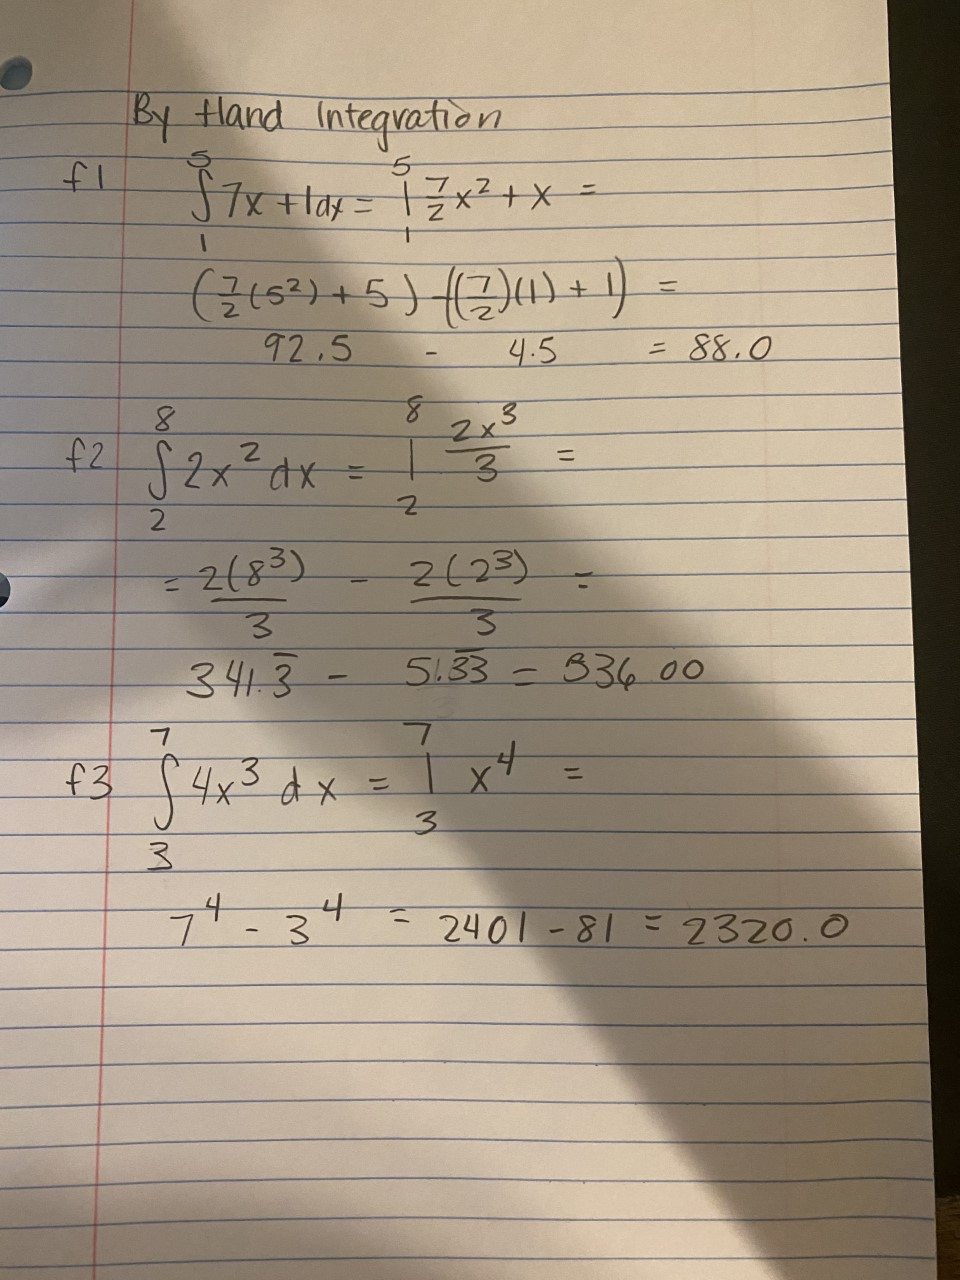 By Hand Integration
f1 ∫₁⁵ 7x + 1 dx = |₁⁵ 7/2 x² + x =
(7/2 (5²) + 5) - ((7/2)(1) + 1) =
92.5 - 4.5 = 88.0
f2 ∫₂⁸ 2x² dx = |₂⁸ 2x³/3 =
= 2(8³)/3 - 2(2³)/3 =
341.3̅ - 51.3̅3̅ = 336.00
f3 ∫₃⁷ 4x³ dx = |₃⁷ x⁴ =
7⁴ - 3⁴ = 2401 - 81 = 2320.0